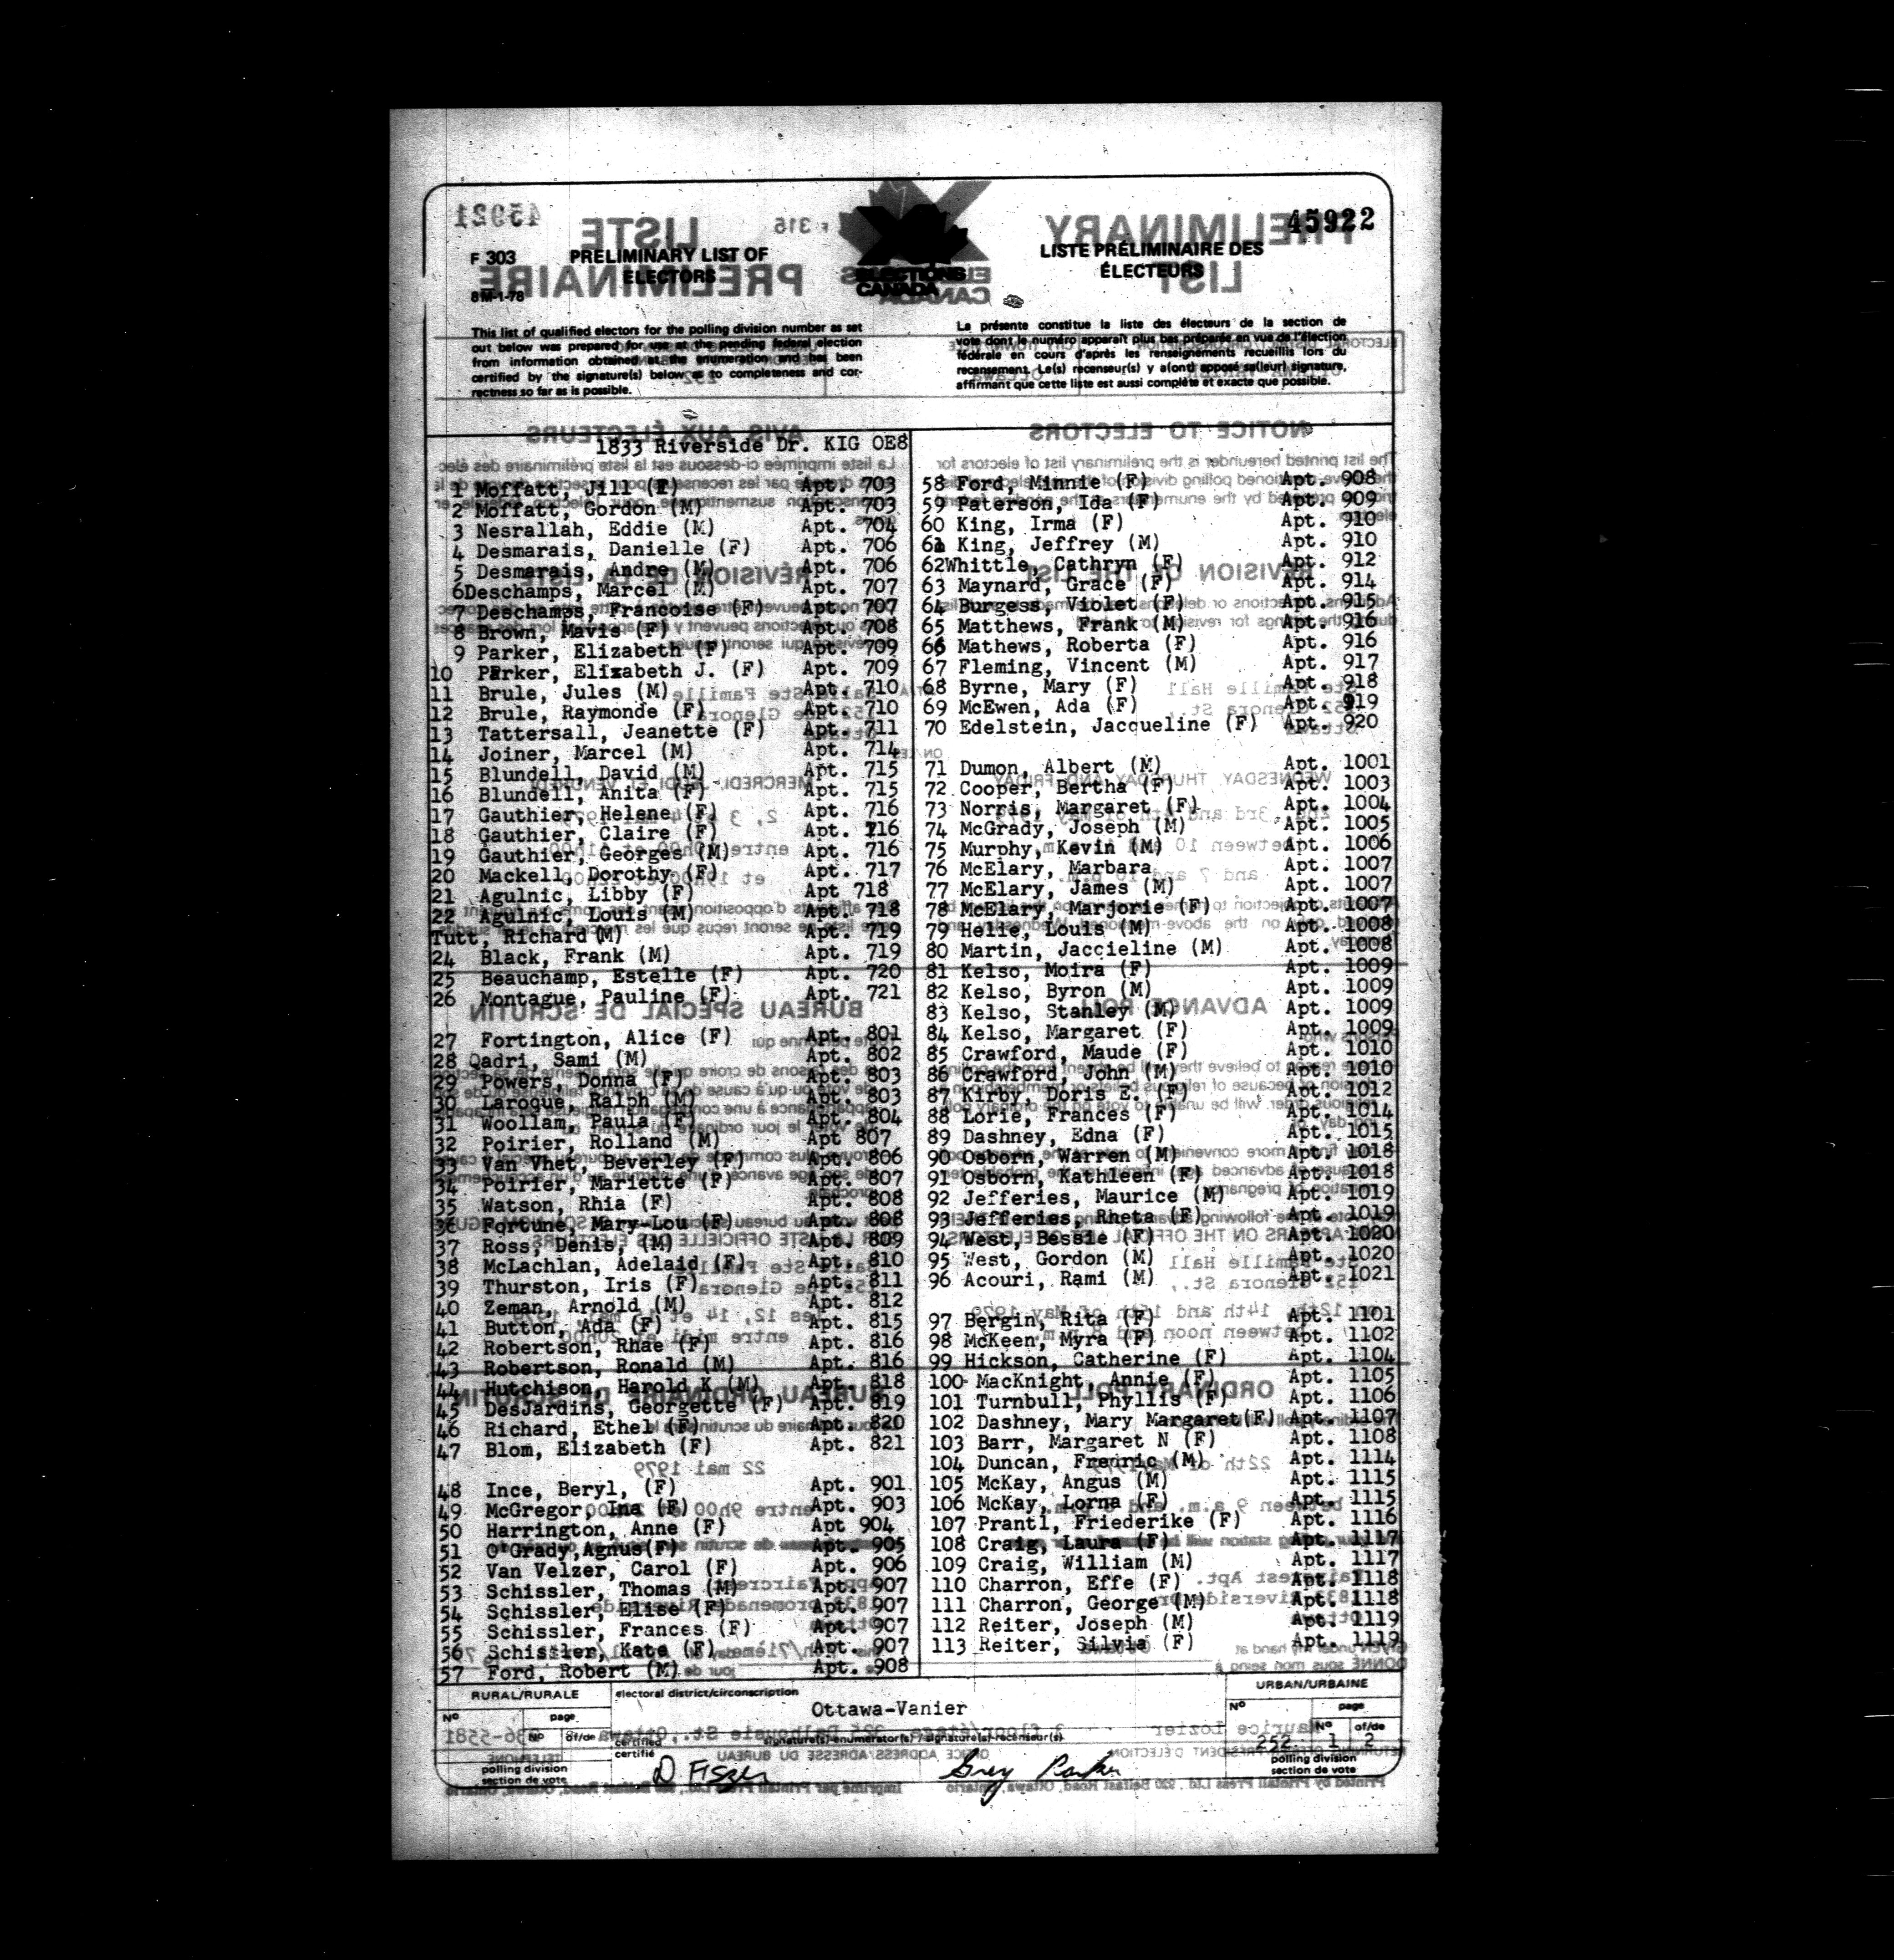 45922
F 303
PRELIMINARY LIST OF
ELECTORS
8M-1-78
ELECTIONS
CANADA
LISTE PRÉLIMINAIRE DES
ÉLECTEURS
This list of qualified electors for the polling division number as set
out below was prepared for use at the pending federal election
from information obtained at the enumeration and has been
certified by the signature(s) below as to completeness and cor-
rectness so far as is possible.
La présente constitue la liste des électeurs de la section de
vote dont le numéro apparaît plus bas préparée en vue de l'élection
fédérale en cours d'après les renseignements recueillis lors du
recensement. Le(s) recenseur(s) y a(ont) apposé sa(leur) signature,
affirmant que cette liste est aussi complète et exacte que possible.
1833 Riverside Dr. KIG OE8
1 Moffatt, Jill (F) Apt. 703
2 Moffatt, Gordon (M) Apt. 703
3 Nesrallah, Eddie (M) Apt. 704
4 Desmarais, Danielle (F) Apt. 706
5 Desmarais, Andre (M) Apt. 706
6Deschamps, Marcel (M) Apt. 707
7 Deschamps, Francoise (F) Apt. 707
8 Brown, Mavis (F) Apt. 708
9 Parker, Elizabeth (F) Apt. 709
10 Parker, Elizabeth J. (F) Apt. 709
11 Brule, Jules (M) Apt. 710
12 Brule, Raymonde (F) Apt. 710
13 Tattersall, Jeanette (F) Apt. 711
14 Joiner, Marcel (M) Apt. 714
15 Blundell, David (M) Apt. 715
16 Blundell, Anita (F) Apt. 715
17 Gauthier, Helene (F) Apt. 716
18 Gauthier, Claire (F) Apt. 716
19 Gauthier, Georges (M) Apt. 716
20 Mackell, Dorothy (F) Apt. 717
21 Agulnic, Libby (F) Apt 718
22 Agulnic, Louis (M) Apt. 718
Tutt, Richard (M) Apt. 719
24 Black, Frank (M) Apt. 719
25 Beauchamp, Estelle (F) Apt. 720
26 Montague, Pauline (F) Apt. 721
27 Fortington, Alice (F) Apt. 801
28 Qadri, Sami (M) Apt. 802
29 Powers, Donna (F) Apt. 803
30 Laroque, Ralph (M) Apt. 803
31 Woollam, Paula (F) Apt. 804
32 Poirier, Rolland (M) Apt 807
33 Van Vhet, Beverley (F) Apt. 806
34 Poirier, Mariette (F) Apt. 807
35 Watson, Rhia (F) Apt. 808
36 Fortune, Mary-Lou (F) Apt. 808
37 Ross, Denis, (M) Apt. 809
38 McLachlan, Adelaid (F) Apt. 810
39 Thurston, Iris (F) Apt. 811
40 Zeman, Arnold (M) Apt. 812
41 Button, Ada (F) Apt. 815
42 Robertson, Rhae (F) Apt. 816
43 Robertson, Ronald (M) Apt. 816
44 Hutchison, Harold K (M) Apt. 818
45 DesJardins, Georgette (F) Apt. 819
46 Richard, Ethel (F) Apt. 820
47 Blom, Elizabeth (F) Apt. 821
48 Ince, Beryl, (F) Apt. 901
49 McGregor, Ina (F) Apt. 903
50 Harrington, Anne (F) Apt 904
51 O'Grady,Agnus(F) Apt. 905
52 Van Velzer, Carol (F) Apt. 906
53 Schissler, Thomas (M) Apt. 907
54 Schissler, Elise (F) Apt. 907
55 Schissler, Frances (F) Apt. 907
56 Schissler, Kate (F) Apt. 907
57 Ford, Robert (M) Apt. 908
58 Ford, Minnie (F) Apt. 908
59 Paterson, Ida (F) Apt. 909
60 King, Irma (F) Apt. 910
61 King, Jeffrey (M) Apt. 910
62Whittle, Cathryn (F) Apt. 912
63 Maynard, Grace (F) Apt. 914
64 Burgess, Violet (F) Apt. 915
65 Matthews, Frank (M) Apt. 916
66 Mathews, Roberta (F) Apt. 916
67 Fleming, Vincent (M) Apt. 917
68 Byrne, Mary (F) Apt. 918
69 McEwen, Ada (F) Apt. 919
70 Edelstein, Jacqueline (F) Apt. 920
71 Dumon, Albert (M) Apt. 1001
72 Cooper, Bertha (F) Apt. 1003
73 Norris, Margaret (F) Apt. 1004
74 McGrady, Joseph (M) Apt. 1005
75 Murphy, Kevin (M) Apt. 1006
76 McElary, Marbara Apt. 1007
77 McElary, James (M) Apt. 1007
78 McElary, Marjorie (F) Apt. 1007
79 Helie, Louis (M) Apt. 1008
80 Martin, Jaccieline (M) Apt. 1008
81 Kelso, Moira (F) Apt. 1009
82 Kelso, Byron (M) Apt. 1009
83 Kelso, Stanley (M) Apt. 1009
84 Kelso, Margaret (F) Apt. 1009
85 Crawford, Maude (F) Apt. 1010
86 Crawford, John (M) Apt. 1010
87 Kirby, Doris E. (F) Apt. 1012
88 Lorie, Frances (F) Apt. 1014
89 Dashney, Edna (F) Apt. 1015
90 Osborn, Warren (M) Apt. 1018
91 Osborn, Kathleen (F) Apt. 1018
92 Jefferies, Maurice (M) Apt. 1019
93 Jefferies, Rheta (F) Apt. 1019
94 West, Bessie (F) Apt. 1020
95 West, Gordon (M) Apt. 1020
96 Acouri, Rami (M) Apt. 1021
97 Bergin, Rita (F) Apt. 1101
98 McKeen, Myra (F) Apt. 1102
99 Hickson, Catherine (F) Apt. 1104
100 MacKnight, Annie (F) Apt. 1105
101 Turnbull, Phyllis (F) Apt. 1106
102 Dashney, Mary Margaret(F) Apt. 1107
103 Barr, Margaret N (F) Apt. 1108
104 Duncan, Fredric (M) Apt. 1114
105 McKay, Angus (M) Apt. 1115
106 McKay, Lorna (F) Apt. 1115
107 Prantl, Friederike (F) Apt. 1116
108 Craig, Laura (F) Apt. 1117
109 Craig, William (M) Apt. 1117
110 Charron, Effe (F) Apt. 1118
111 Charron, George (M) Apt. 1118
112 Reiter, Joseph (M) Apt. 1119
113 Reiter, Silvia (F) Apt. 1119
RURAL/RURALE
electoral district/circonscription
Ottawa-Vanier
URBAN/URBAINE
Nº page
Nº of/de
Nº page
Nº of/de
252 1 2
certified
certifié
signature(s)-enumerator(s) / signature(s)-recenseur(s)
Grey Parker
polling division
section de vote
polling division
section de vote